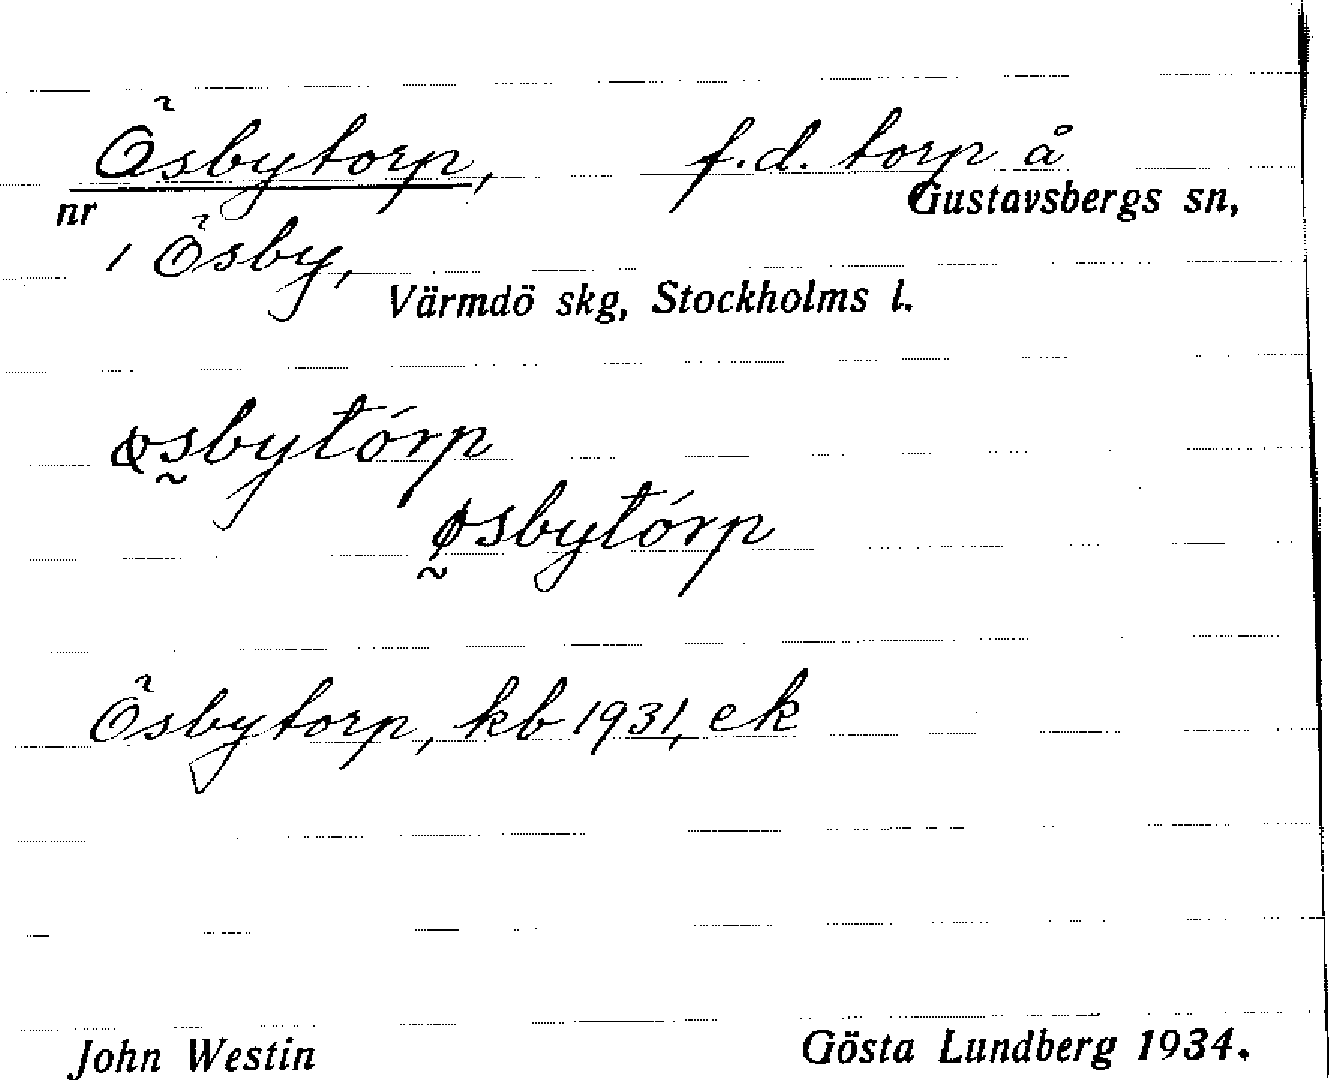 Ösbytorp, f.d. torp å
nr Gustavsbergs sn,
1 Ösby,
Värmdö skg, Stockholms l.
øsbytórp
øsbytórp
Ösbytorp, kb 1931, ek
John Westin Gösta Lundberg 1934.